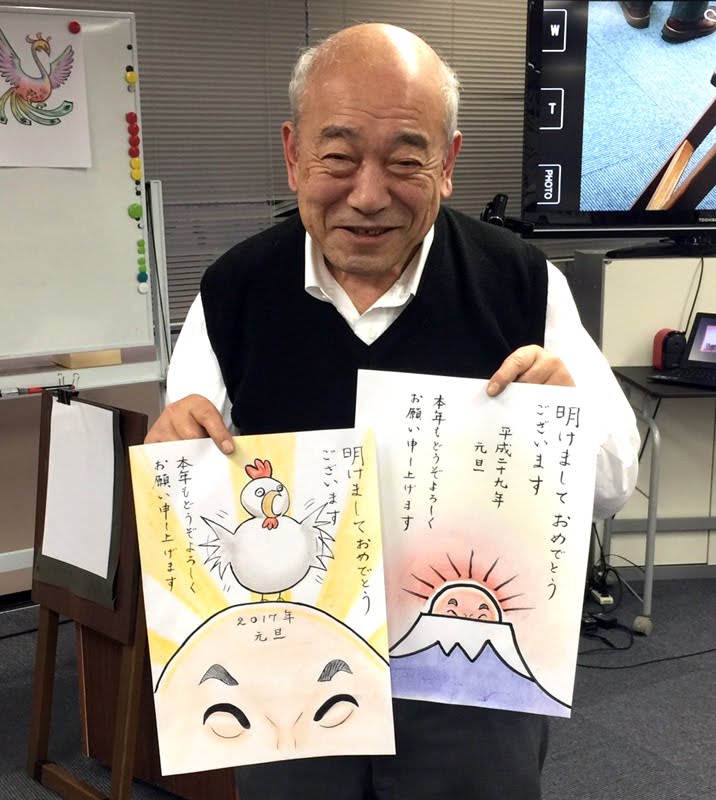 明けまして おめでとう
ございます
2017年
元旦
本年もどうぞよろしく
お願い申し上げます
明けまして おめでとう
ございます
平成二十九年
元旦
本年もどうぞよろしく
お願い申し上げます
W
T
PHOTO
TOSHIBA